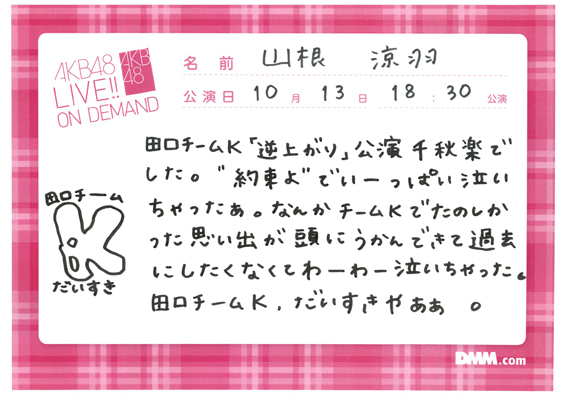 AKB48
LIVE!!
ON DEMAND
AKB
48
名前 山根 涼羽
公演日 10月 13日 18:30公演
田口チームK「逆上がり」公演千秋楽で
した。"約束よ"でいーっぱい泣い
ちゃったぁ。なんかチームKでたのしか
った思い出が頭にうかんできて過去
にしたくなくてわーわー泣いちゃった。
田口チームK、だいすきやぁぁ 。
田口チーム
K
だいすき
DMM.com